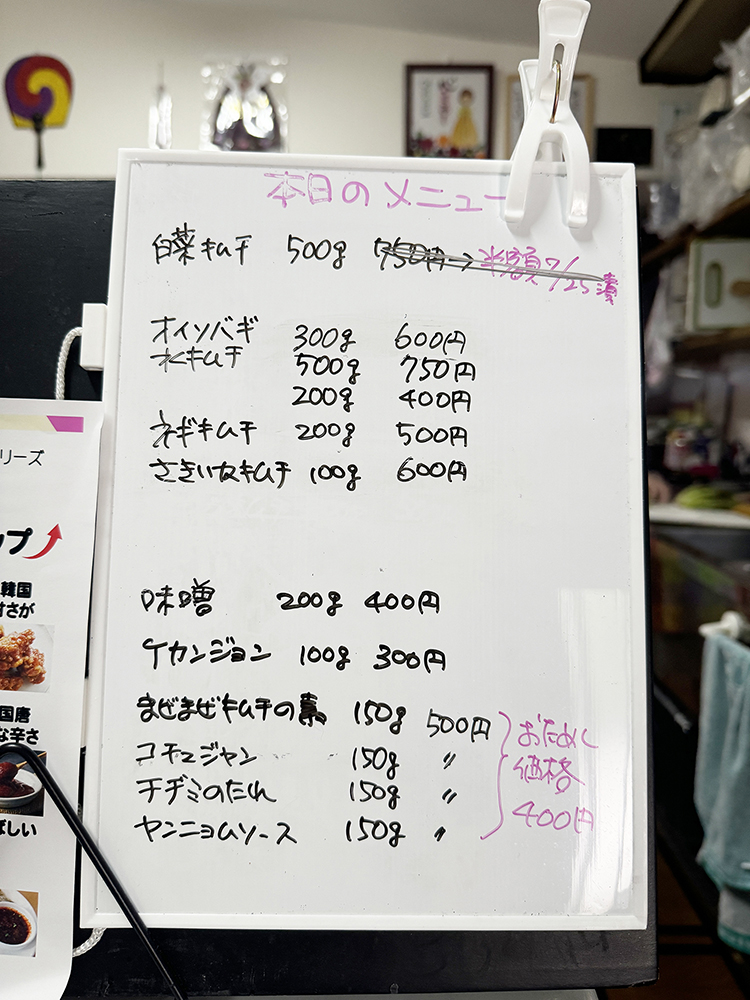 本日のメニュー
白菜キムチ 500g 750円→半額 7/25漬
オイソバギ 300g 600円
水キムチ 500g 750円
200g 400円
ネギキムチ 200g 500円
さきいかキムチ 100g 600円
味噌 200g 400円
ケカンジョン 100g 300円
まぜまぜキムチの素 150g 500円
コチュジャン 150g 〃
チヂミのたれ 150g 〃
ヤンニョムソース 150g 〃
おためし
価格
400円
リーズ
ップ
韓国
甘さが
国唐
な辛さ
ばしい